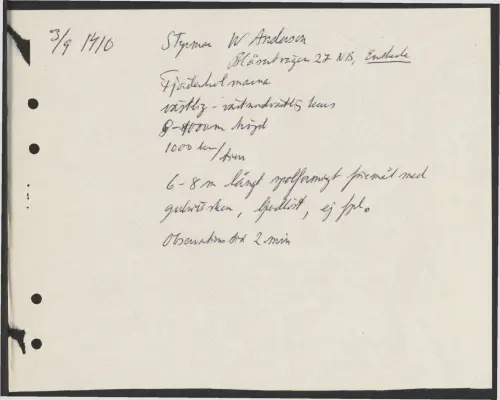 3/9 1410 Styrman W Anderson
Blåsutvägen 27 NB, Enskede
Fjäderholmarna
västlig - västnordvästlig kurs
8-900 m höjd
1000 km/tim
6-8 m långt spolformigt föremål med
, ljudlöst, ej fpl.
Observationstid 2 min